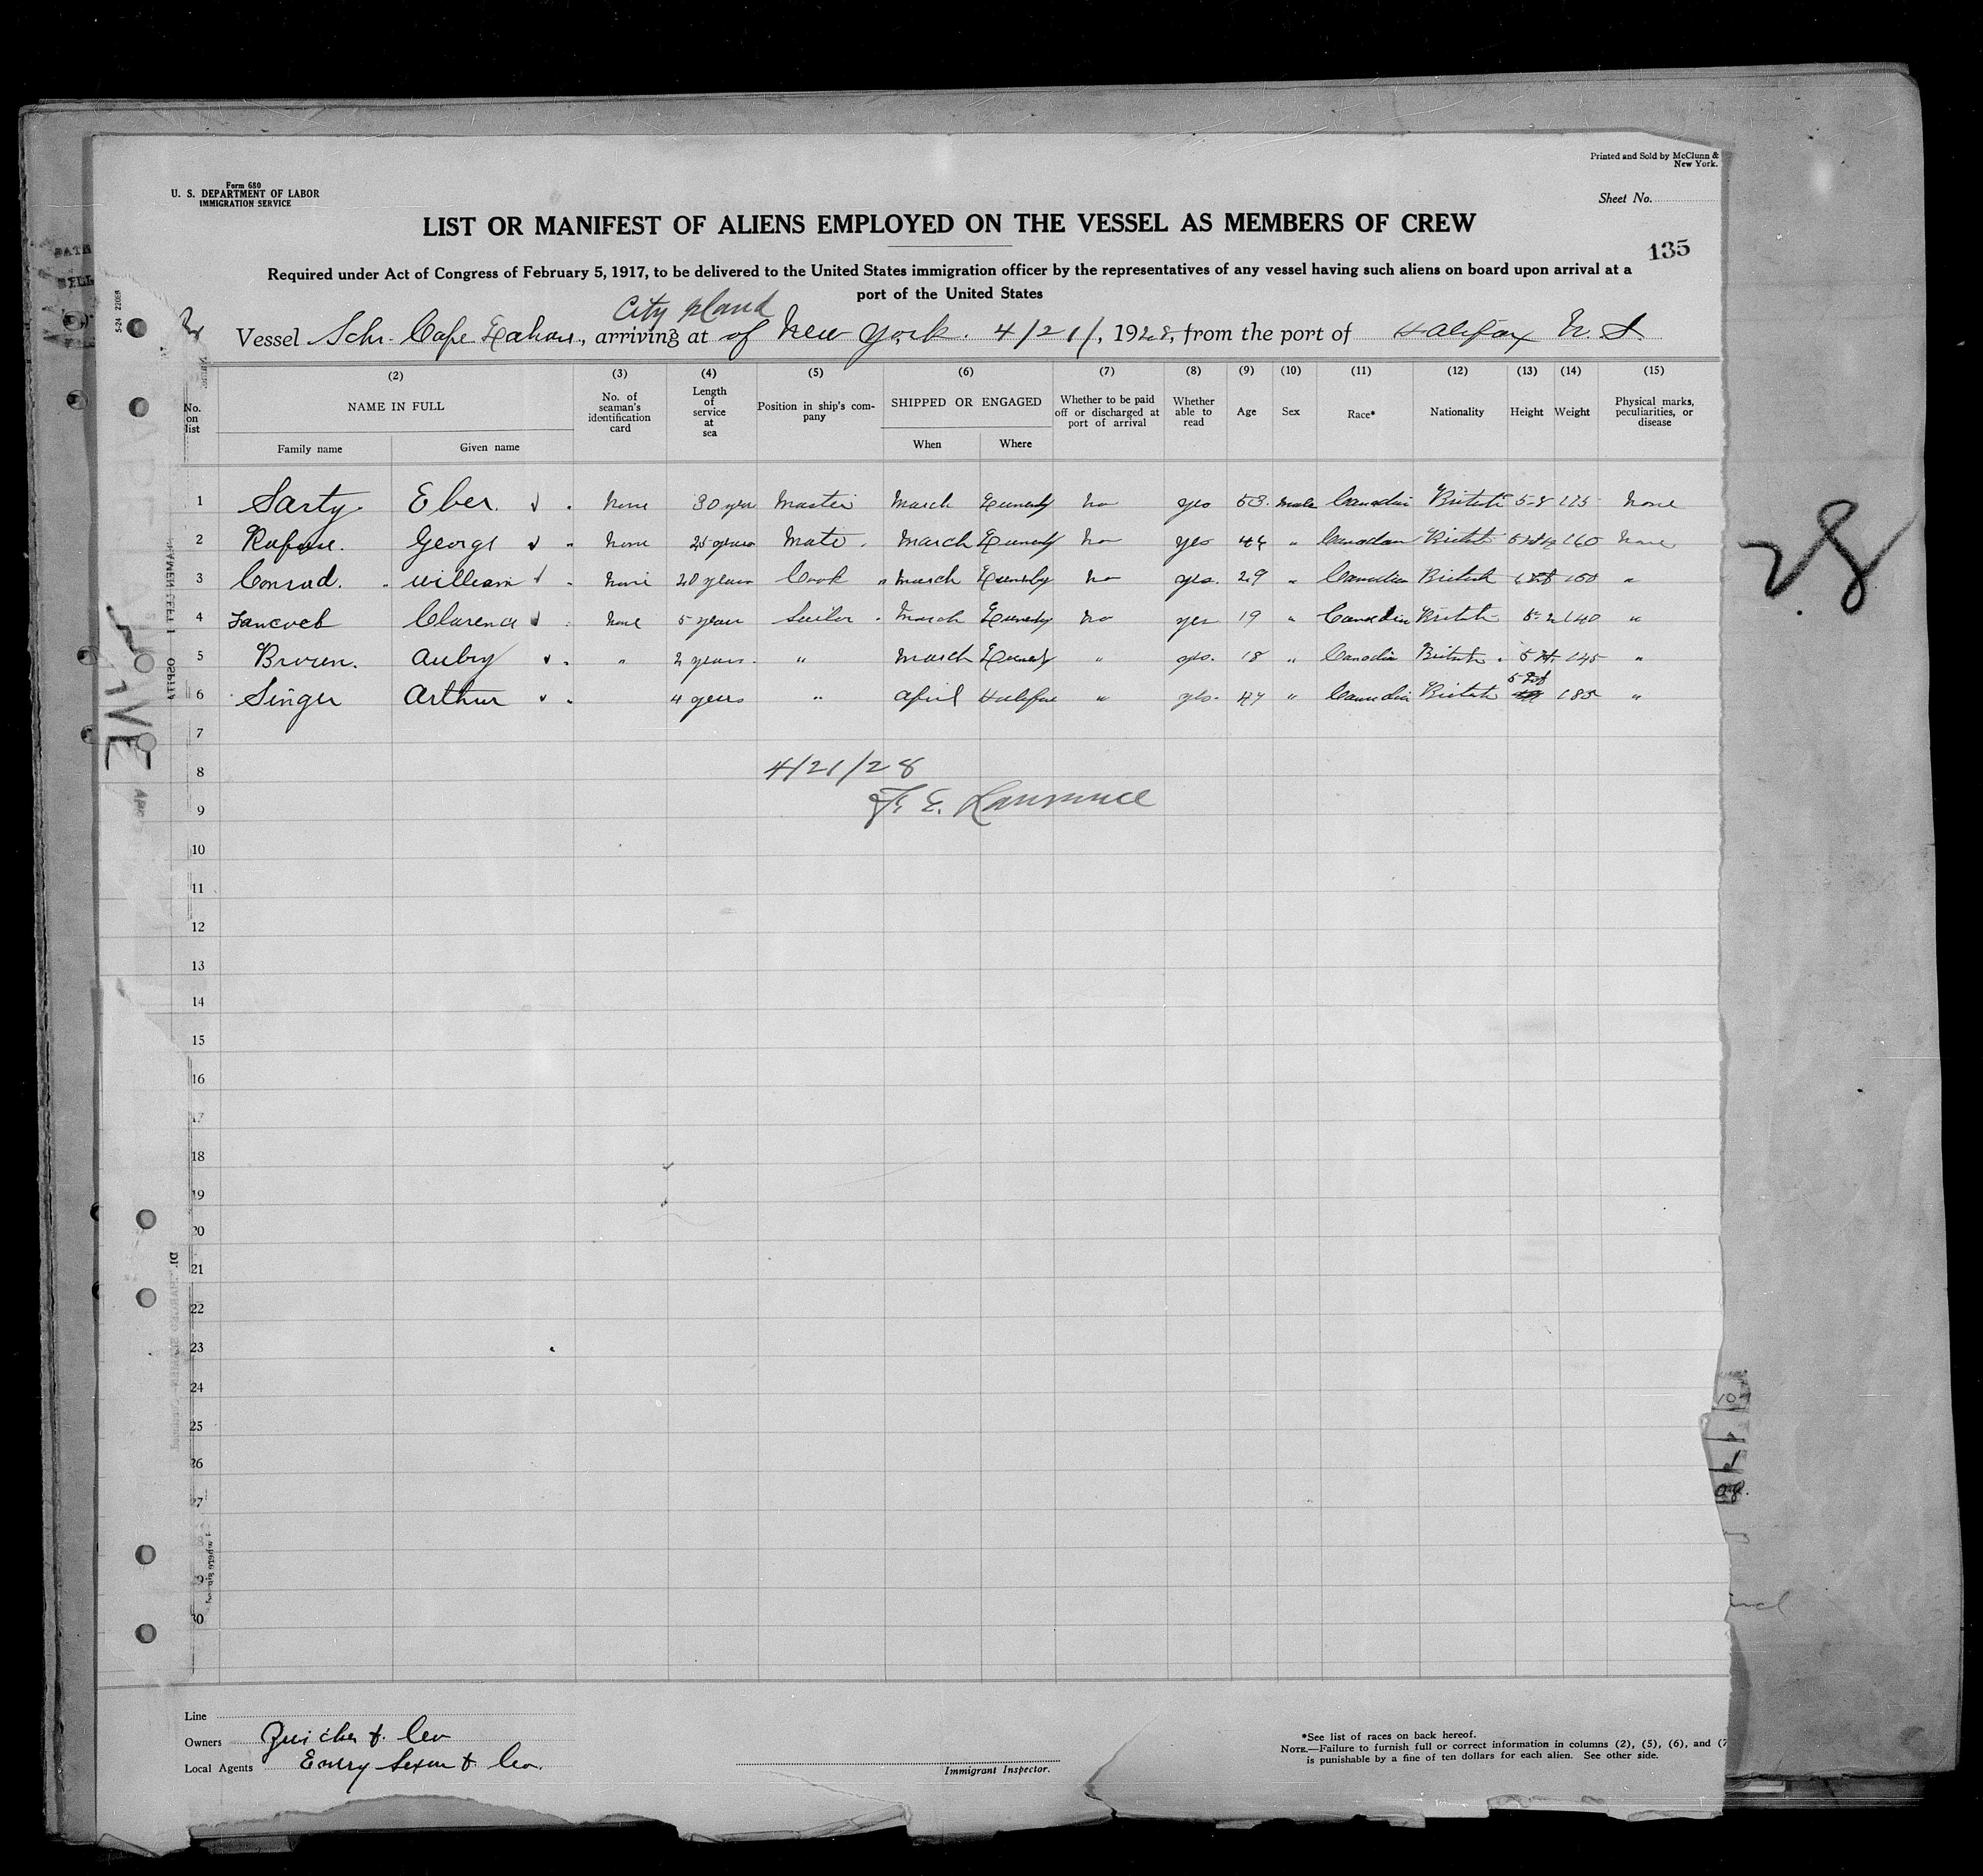 Printed and Sold by McClunn &
New York.
Form 680
U. S. DEPARTMENT OF LABOR
IMMIGRATION SERVICE
Sheet No.
LIST OR MANIFEST OF ALIENS EMPLOYED ON THE VESSEL AS MEMBERS OF CREW
135
Required under Act of Congress of February 5, 1917, to be delivered to the United States immigration officer by the representatives of any vessel having such aliens on board upon arrival at a
port of the United States
City Island
Vessel Schr. Cape, arriving at of New York. 4/21/, 1928, from the port of Halifax N. S.
(2) (3) (4) (5) (6) (7) (8) (9) (10) (11) (12) (13) (14) (15)
No. on list NAME IN FULL No. of seaman's identification card Length of service at sea Position in ship's company SHIPPED OR ENGAGED Whether to be paid off or discharged at port of arrival Whether able to read Age Sex Race* Nationality Height Weight Physical marks, peculiarities, or disease
Family name Given name When Where
1 Sarty. Eber. None 30 year Master March No yes 53. male Canadian British 5-8 175 None
2 George None 25 years Mate. March No yes 44 " Canadian British 160 None
3 Conrad. William None 20 years Cook " March No yes. 29 " Canadian British 150 "
4 Clarence None 5 years Sailor March No yes 19 " Canadian British 140 "
5 Brown. Aubry " 2 years. " March " yes. 18 " Canadian British 145 "
6 Singer Arthur 4 years " April Halifax " yes. 47 " Canadian British 185 "
7
8 4/21/28
9 F. E. Lawrence
10
11
12
13
14
15
16
17
18
19
20
21
22
23
24
25
26
27
30
28
Line
Owners Zwicker & Co
Local Agents & Co.
Immigrant Inspector.
*See list of races on back hereof.
NOTE.—Failure to furnish full or correct information in columns (2), (5), (6), and (7
is punishable by a fine of ten dollars for each alien. See other side.